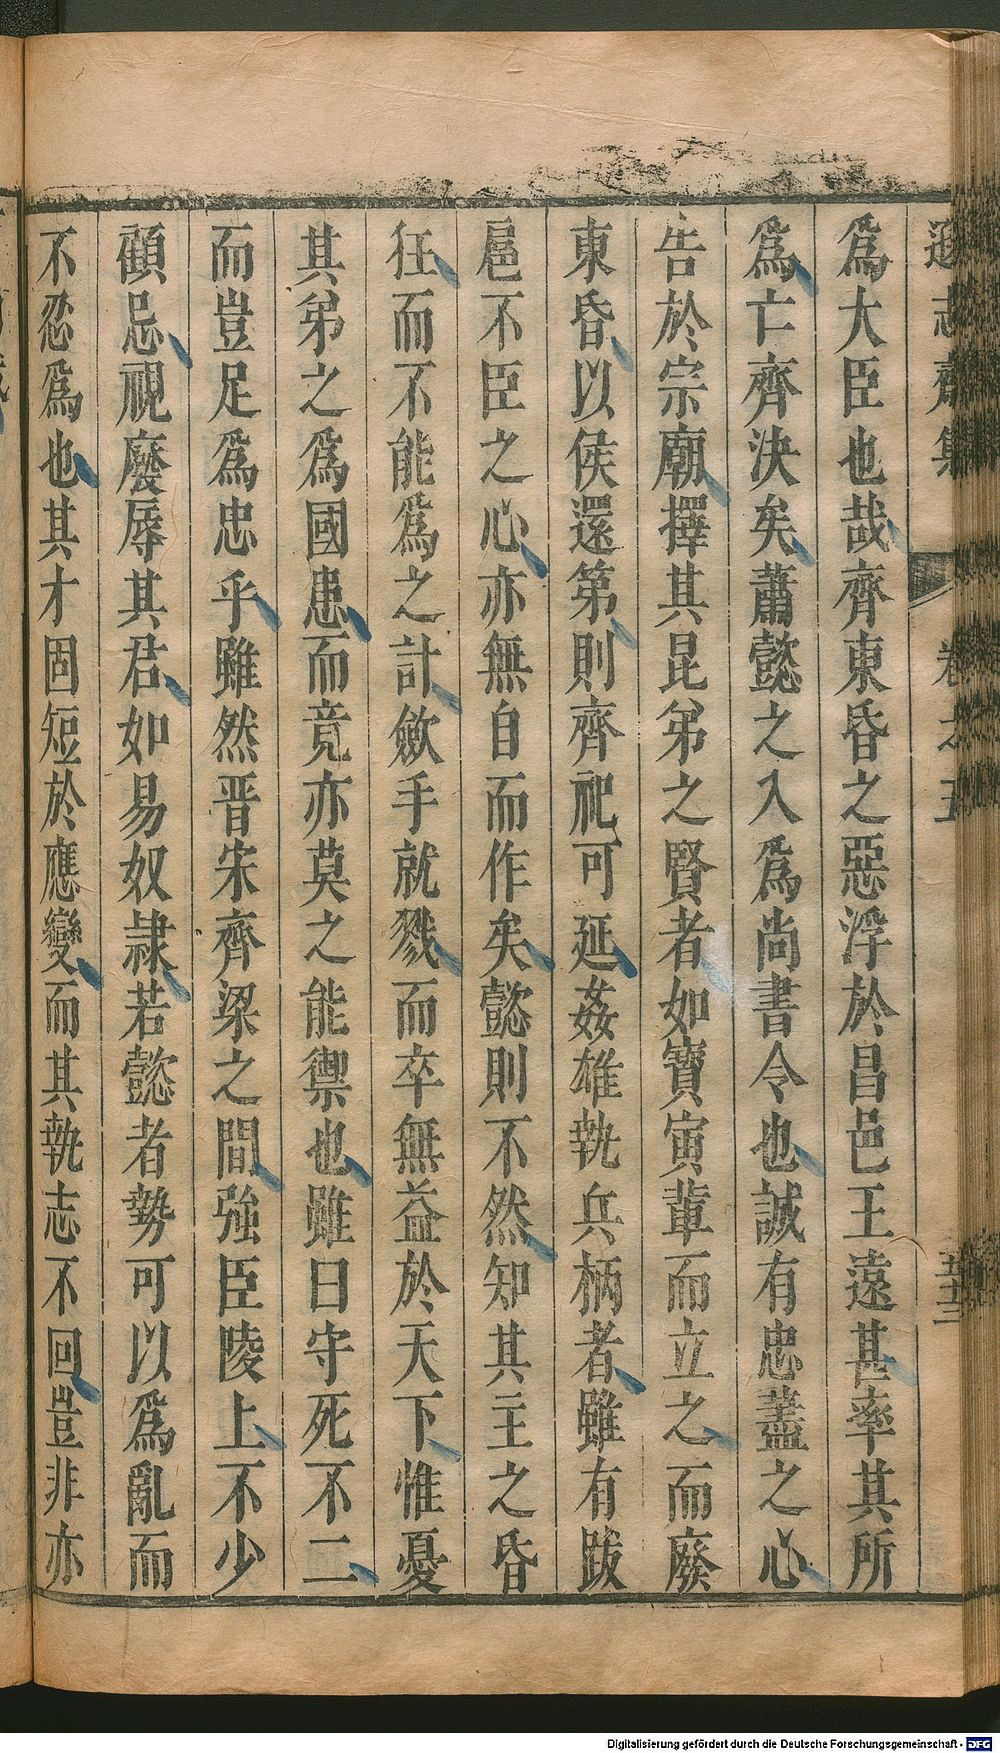 遜志齋集 卷之五 五十三
爲大臣也哉齊東昏之惡浮於昌邑王遠甚率其所
爲亡齊決矣蕭懿之入爲尚書令也誠有忠藎之心
告於宗廟擇其昆弟之賢者如寶寅輩而立之而廢
東昏以侯還第則齊祀可延姦雄執兵柄者雖有跋
扈不臣之心亦無自而作矣懿則不然知其主之昏
狂而不能爲之計斂手就戮而卒無益於天下惟憂
其弟之爲國患而竟亦莫之能禦也雖曰守死不二
而豈足爲忠乎雖然晋宋齊梁之間强臣陵上不少
顧忌視廢辱其君如易奴隷若懿者勢可以爲亂而
不忍爲也其才固短於應變而其執志不回豈非亦
Digitalisierung gefördert durch die Deutsche Forschungsgemeinschaft - DFG